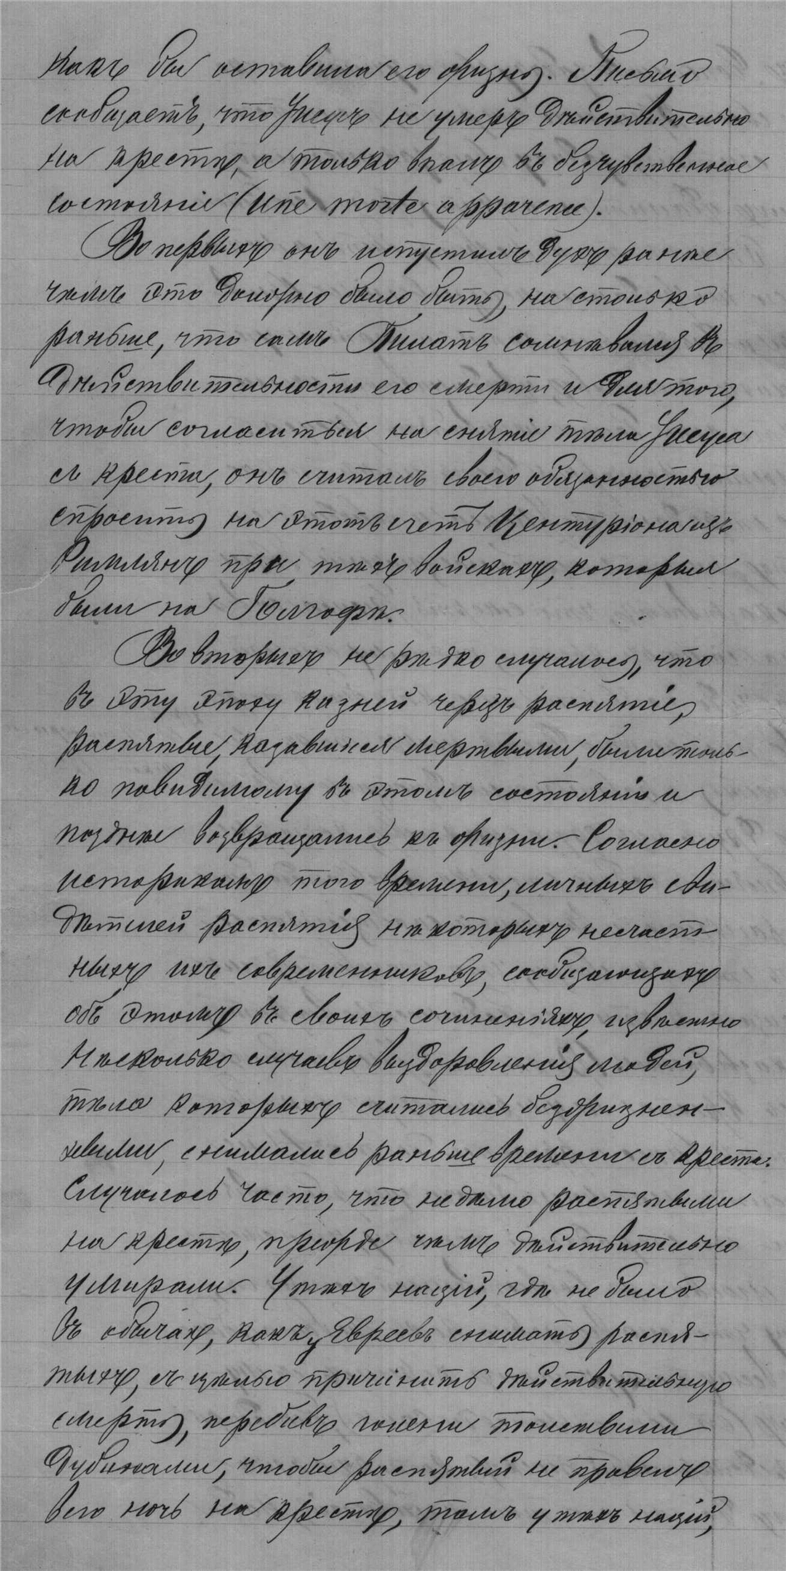 какъ бы оставила его жизнь. Письмо
сообщаетъ, что Iисусъ не умеръ дѣйствительно
на крестѣ, а только впалъ въ безчувственное
состоянiе (Une morte apparence).
Во первыхъ онъ испустилъ духъ ранѣе
чѣмъ это должно было быть, на столько
раньше, что самъ Пилатъ сомнѣвался въ
дѣйствительности его смерти и для того,
чтобы согласиться на снятiе тѣла Iисуса
съ креста, онъ считалъ своею обязанностью
спросить на этотъ счетъ Центурiона изъ
Римлянъ при тѣхъ войскахъ, которыя
были на Голгофѣ.
Во вторыхъ не рѣдко случалось, что
въ эту эпоху казней черезъ распятiе,
распятые, казавшiеся мертвыми, были толь-
ко повидимому въ этомъ состоянiи и
позднѣе возвращались къ жизни. Согласно
историкамъ того времени, личныхъ сви-
дѣтелей распятiя нѣкоторыхъ несчаст-
ныхъ ихъ современниковъ, сообщающихъ
объ этомъ въ своихъ сочиненiяхъ, извѣстно
нѣсколько случаевъ выздоровленiя людей,
тѣла которыхъ считались безжизнен-
ными, снимались раньше времени съ креста.
Случалось часто, что недѣлю распятыми
на крестѣ, прежде чѣмъ дѣйствительно
умирали. У тѣхъ нацiй, гдѣ не было
въ обычаѣ, какъ у Евреевъ снимать распя-
тыхъ, съ цѣлью причинить дѣйствительную
смерть, перебивъ голени толстыми
дубинами, чтобы распятый не провелъ
всю ночь на крестѣ, тамъ у тѣхъ нацiй,